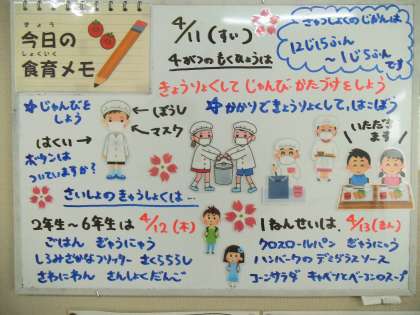 きょう
今日の
しょくいく
食育メモ
4/11(すい)
4がつのもくひょうは
きょうりょくして じゅんび・かたづけをしよう
きゅうしょくのじかんは
12じ15ふん
〜1じ5ふん
です
じゅんびを
しよう
ぼうし
マスク
はくい
ボタンは
ついていますか?
かかりできょうりょくして、はこぼう
いただき
ます
さいしょのきゅうしょくは…
2年生〜6年生は 4/12(木)
ごはん ぎゅうにゅう
しろみざかなフリッター さくらちらし
さわにわん さんしょくだんご
1ねんせいは、4/13(きん)
クロスロールパン ぎゅうにゅう
ハンバーグのデミグラスソース
コーンサラダ キャベツとベーコンのスープ